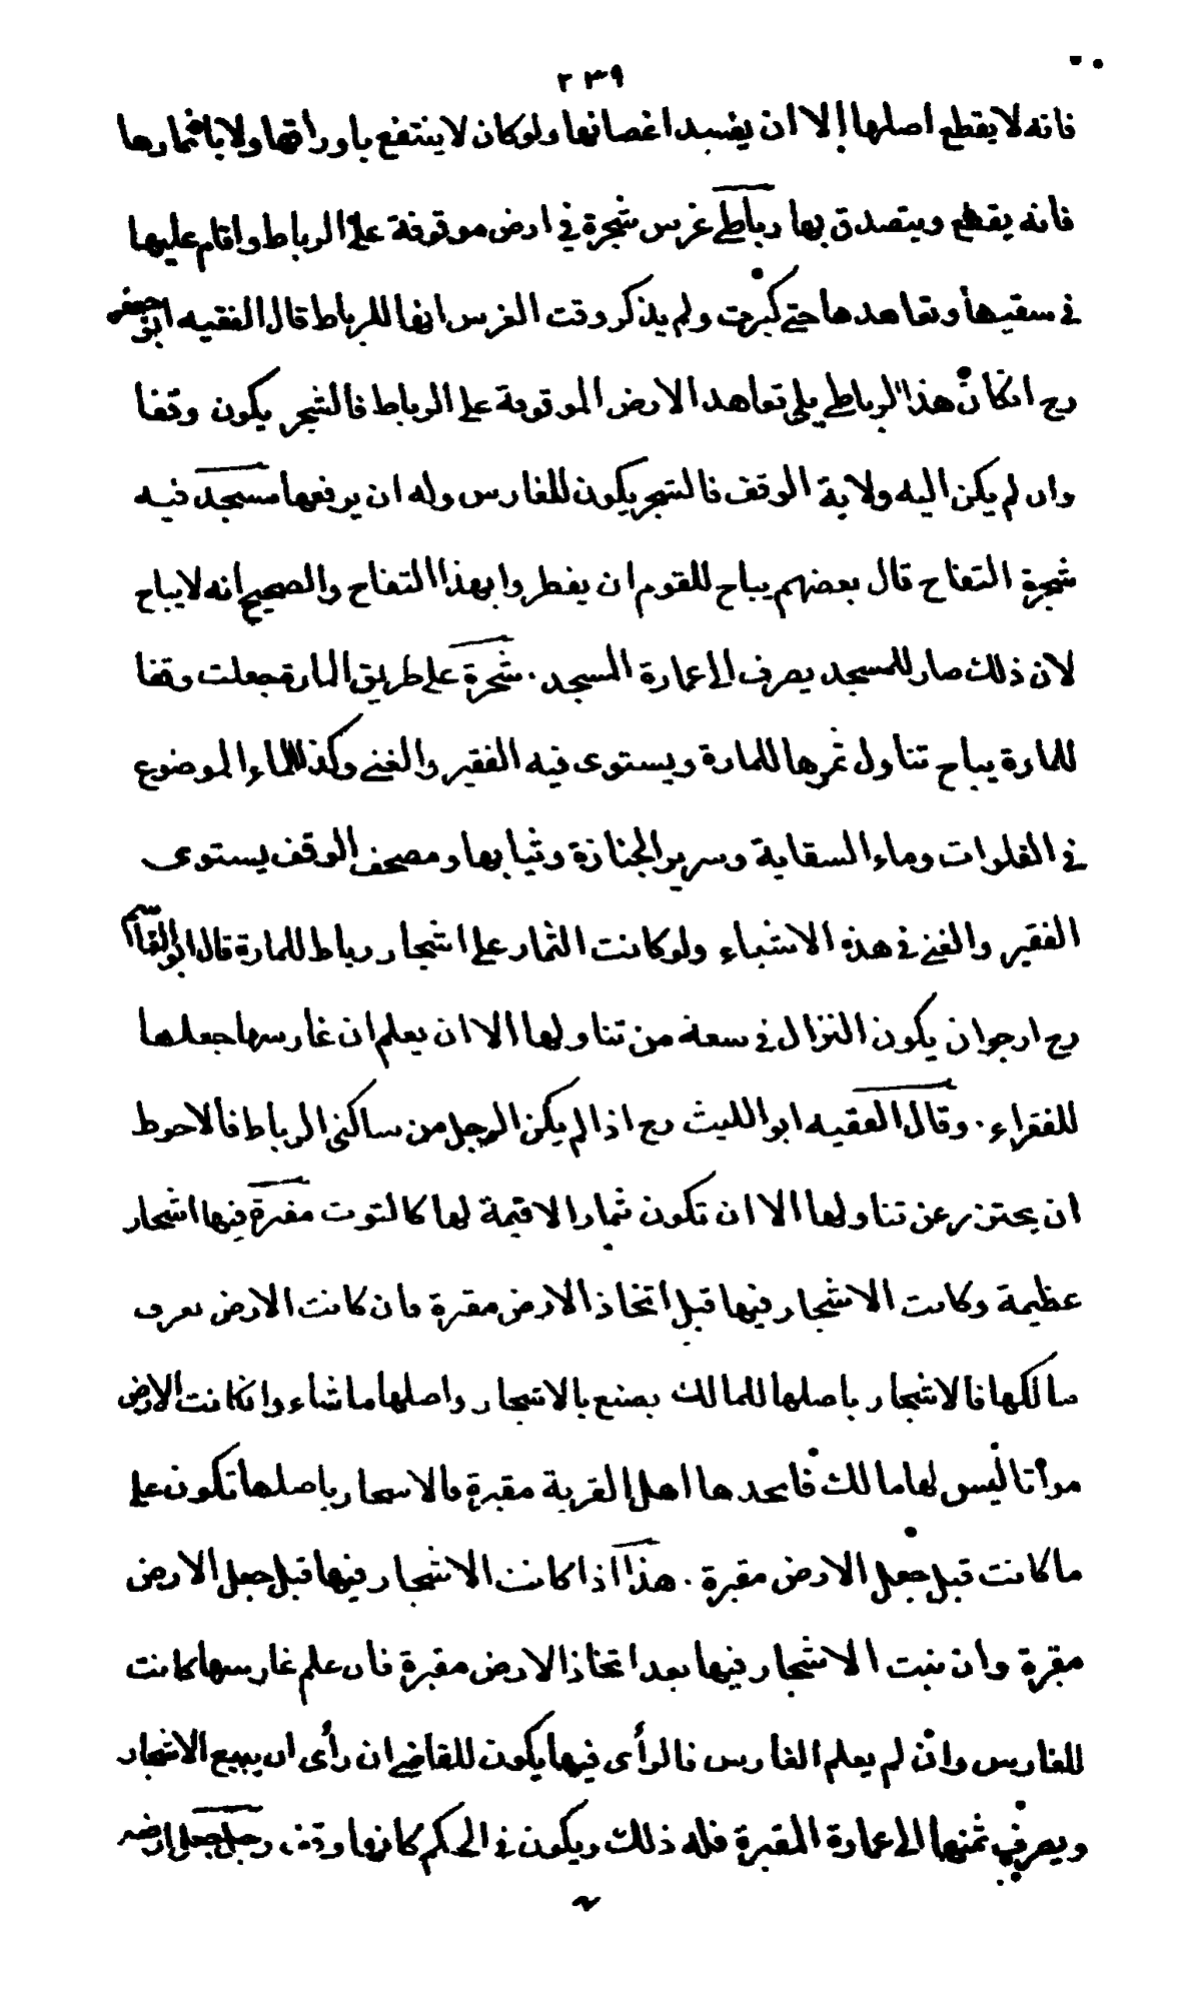 ٢٣٩
فانه لا يقطع اصلها إلا ان يفسد اغصانها ولو كان لا ينتفع باوراقها ولا باثمارها
فانه يقطع ويتصدق بها رباطي غرس شجرة في ارض موقوفة على الرباط واقام عليها
في سقيها وتعاهدها حتى كبرت ولم يذكر وقت الغرس انها للرباط قال الفقيه ابو جعفر
رح انكان هذا الرباطي يلى تعاهد الارض الموقوفة على الرباط فالشجر يكون وقفا
وان لم يكن اليه ولاية الوقف فالشجر يكون للغارس وله ان يرفعها مسجد فيه
شجرة التفاح قال بعضهم يباح للقوم ان يفطروا بهذا التفاح والصحيح انه لا يباح
لان ذلك صار للمسجد يصرف الى عمارة المسجد . شجرة على طريق المارة جعلت وقفا
للمارة يباح تناول ثمرها للمارة ويستوى فيه الفقير والغني وكذا الماء الموضوع
في الفلوات وماء السقاية وسرير الجنازة وثيابها ومصحف الوقف يستوى
الفقير والغني في هذه الاشياء ولو كانت الثمار على اشجار رباط للمارة قال ابو القاسم
رح ارجو ان يكون النزال في سعة من تناولها الا ان يعلم ان غارسها جعلها
للفقراء . وقال الفقيه ابو الليث رح اذا لم يكن الرجل من ساكنى الرباط فالاحوط
ان يحترز عن تناولها الا ان تكون ثمارا لا قيمة لها كالتوت مقبرة فيها اشجار
عظيمة وكانت الاشجار فيها قبل اتخاذ الارض مقبرة فان كانت الارض تعرف
مالكها فالاشجار باصلها للمالك يصنع بالاشجار واصلها ما شاء وانكانت الارض
مواتا ليس لها مالك فاتخذها اهل القرية مقبرة فالاشجار باصلها تكون على
ما كانت قبل جعل الارض مقبرة . هذا اذا كانت الاشجار فيها قبل جعل الارض
مقبرة وان نبت الاشجار فيها بعد اتخاذ الارض مقبرة فان علم غارسها كانت
للغارس وان لم يعلم الغارس فالرأى فيها يكون للقاضي ان رأى ان يبيع الاشجار
ويصرف ثمنها الى عمارة المقبرة فله ذلك ويكون في الحكم كانها وقف رجل جعل ارضه